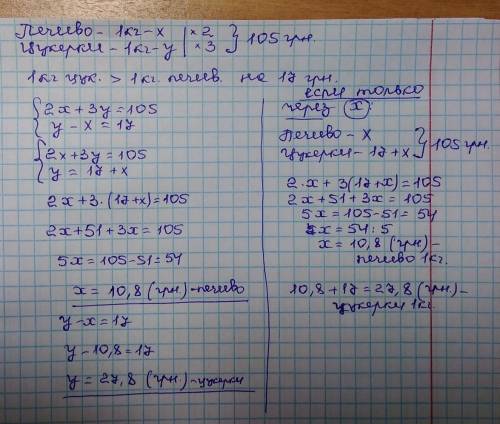 Печево - 1кг - х | × 2
Цукерки - 1кг - у | × 3 } 105 грн.
1кг цук. > 1кг. печев. на 17 грн.
{ 2х + 3у = 105
у - х = 17
{ 2х + 3у = 105
у = 17 + х
2х + 3 · (17 + х) = 105
2х + 51 + 3х = 105
5х = 105 - 51 = 54
х = 10,8 (грн) - печево
у - х = 17
у - 10,8 = 17
у = 27,8 (грн.) - цукерки
если только
через (х):
Печиво - х
Цукерки - 17 + х } 105 грн.
2 · х + 3 (17 + х) = 105
2х + 51 + 3х = 105
5х = 105 - 51 = 54
х = 54 : 5
х = 10,8 (грн) -
печево 1кг.
10,8 + 17 = 27,8 (грн) -
цукерки 1кг.